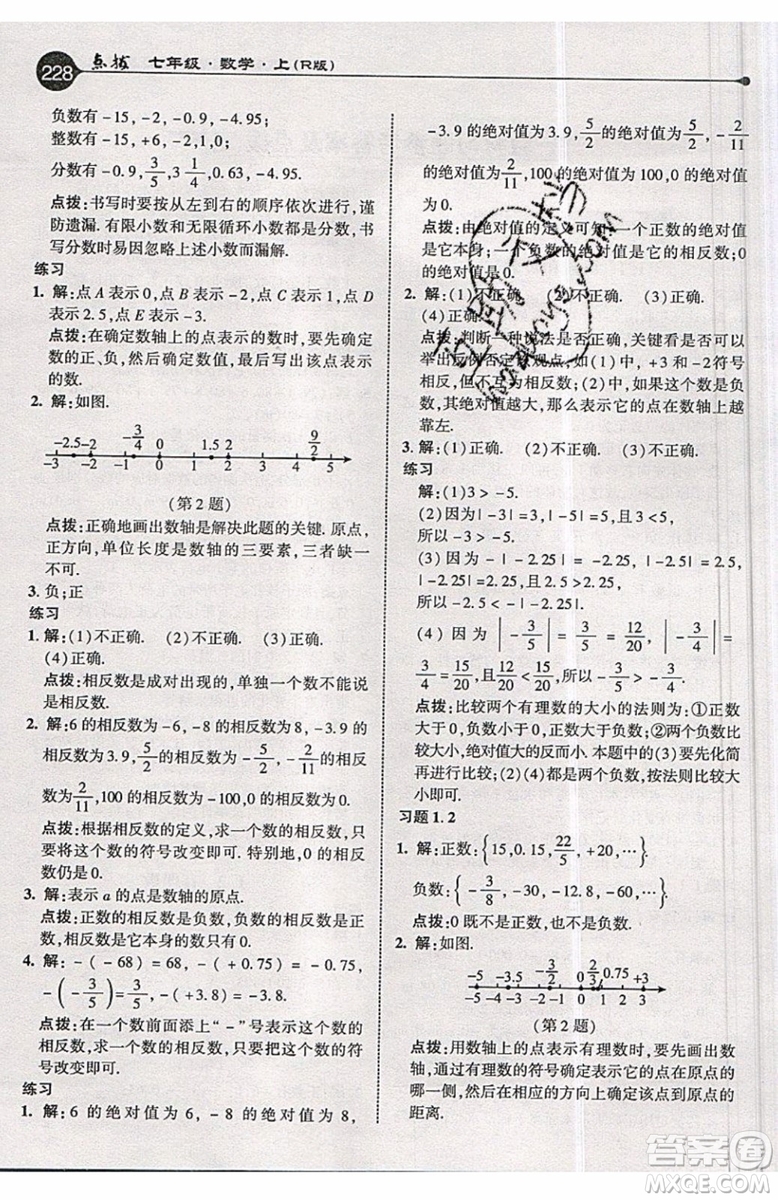 228 点拨 七年级·数学·上(R版)
负数有-15,-2,-0.9,-4.95.
整数有-15,+6,-2,1,0.
分数有-0.9,3/5,3 1/4,0.63,-4.95.
点拨:书写时要按从左到右的顺序依次进行,谨
防遗漏.有限小数和无限循环小数都是分数,书
写分数时易因忽略上述小数而漏解.
练习
1. 解:点A表示0,点B表示-2,点C表示1,点D
表示2.5,点E表示-3.
点拨:在确定数轴上的点表示的数时,要先确定
数的正、负,然后确定数值,最后写出该点表示
的数.
2. 解:如图.
-2.5 -2 -3/4 0 1.5 2 9/2
-3 -2 -1 0 1 2 3 4 5
(第2题)
点拨:正确地画出数轴是解决此题的关键.原点,
正方向,单位长度是数轴的三要素,三者缺一
不可.
3. 负;正
练习
1. 解:(1)不正确. (2)不正确. (3)正确.
(4)正确.
点拨:相反数是成对出现的,单独一个数不能说
是相反数.
2. 解:6的相反数为-6,-8的相反数为8,-3.9的
相反数为3.9,5/2的相反数为-5/2,-2/11的相反数
为2/11,100的相反数为-100,0的相反数为0.
点拨:根据相反数的定义,求一个数的相反数,只
要将这个数的符号改变即可.
3. 解:表示a的点是数轴的原点.
点拨:正数的相反数是负数,负数的相反数是正
数,相反数是它本身的数只有0.
4. 解:-(-68)=68,-(+0.75)=-0.75,
-(-3/5)=3/5,-(+3.8)=-3.8.
点拨:在一个数前面添上“-”号表示这个数的
相反数,求一个数的相反数,只要将这个数的符
号改变即可.
练习
1. 解:6的绝对值为6,-8的绝对值为8,
-3.9的绝对值为3.9,5/2的绝对值为5/2,-2/11
的绝对值为2/11,100的绝对值为100,0的绝对值
为0.
点拨:由绝对值的定义可知,一个正数的绝对值
是它本身;一个负数的绝对值是它的相反数;
0的绝对值是0.
2. 解:(1)不正确. (2)不正确. (3)正确.
(4)正确.
点拨:判断一种说法是否正确,关键看是否可以
举出反例否定该观点,如(1)中,+3和-2符号
相反,但不互为相反数;(2)中,如果这个数是负
数,其绝对值越大,那么表示它的点在数轴上越
靠左.
3. 解:(1)正确. (2)不正确. (3)不正确.
练习
解:(1)3>-5.
(2)因为|-3|=3,|-5|=5,且3<5,
所以-3>-5.
(3)因为-|-2.25|=-2.25,|-2.5|=
2.5,|-2.25|=2.25,且2.5>2.25,
所以-2.5<-|-2.25|.
(4)因为|-3/5|=3/5=12/20,|-3/4|=
3/4=15/20,且12/20<15/20,所以-3/5>-3/4.
点拨:比较两个有理数的大小的法则为:①正数
大于0,负数小于0,正数大于负数;②两个负数
比较大小,绝对值大的反而小.本题中的(3)要先化简
再进行比较;(2)(4)都是两个负数,按法则比较大
小即可.
习题1.2
1. 解:正数:{15,0.15,22/5,+20,…}.
负数:{-3/8,-30,-12.8,-60,…}.
点拨:0既不是正数,也不是负数.
2. 解:如图.
-5 -3/2 0 2/3 0.75 +3
-5 -4 -3 -2 -1 0 1 2 3
(第2题)
点拨:用数轴上的点表示有理数时,要先看原点
的哪一侧,然后在相应的方向上确定该点到原点的
距离.
答案圈